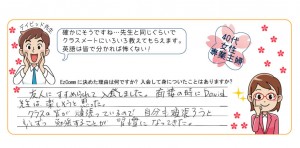 デイビッド先生
確かにそうですね…先生と同じくらいで
クラスメートにいろいろ教えてもらえます。
英語は皆で分かれば怖くない!
40代
女性
専業主婦
EzComeに決めた理由は何ですか?入会して身についたことはありますか?
友人にすすめられて入会しました。面接の時にDavid
先生は楽しそうと思った。
クラスの皆が頑張っているので自分も頑張ろうと
少しずつ勉強することが習慣になってきた。